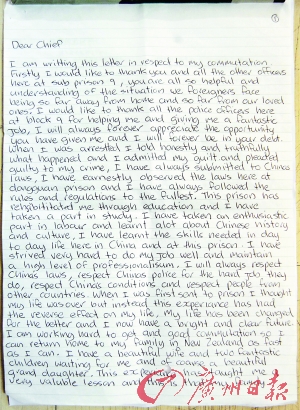 ①
Dear Chief
I am writting this letter in respect to my commutation.
Firstly I would like to thank you and all the other officers
here at sub prison 9, you are all so helpful and
understanding of the situation we foreigners face
being so far away from home and so far from our loved
ones. I would like to thank all the police officers here
at block 9 for helping me and giving me a fantastic
job, I will always forever appreciate the opportunity
you have given me and I will forever be in your debt.
When I was arrested I told honestly and truthfully
what happened and I admitted my guilt and pleaded
guilty to my crime, I have always submitted to China
laws, I have earnestly observed the laws here at
dongguan prison and I have always followed the
rules and regulations to the fullest. This prison has
rehabilitated me through education and I have
taken a part in study. I have taken an enthusiastic
part in labour and learnt alot about Chinese history
and culture, I have learnt the skills needed in day
to day life here in China and at this prison. I have
strived very hard to do my job well and maintain
a high level of professionalism. I will always respect
Chinas laws, respect Chinas police for the hard job they
do, respect Chinas conditions and respect people from
other countries. When I was first sent to prison I thought
my life was over but instead this experience has had
the reverse effect on my life. My life has been changed
for the better and I now have a bright and clear future
I am working hard to get and good commutation so I
can return home to my family in New Zealand as fast
as I can. I have a beautiful wife and two fantastic
children waiting for me and of course a beautiful
grand daughter. This experience has taught me a
very valuable lesson and this is that my family
广州日报